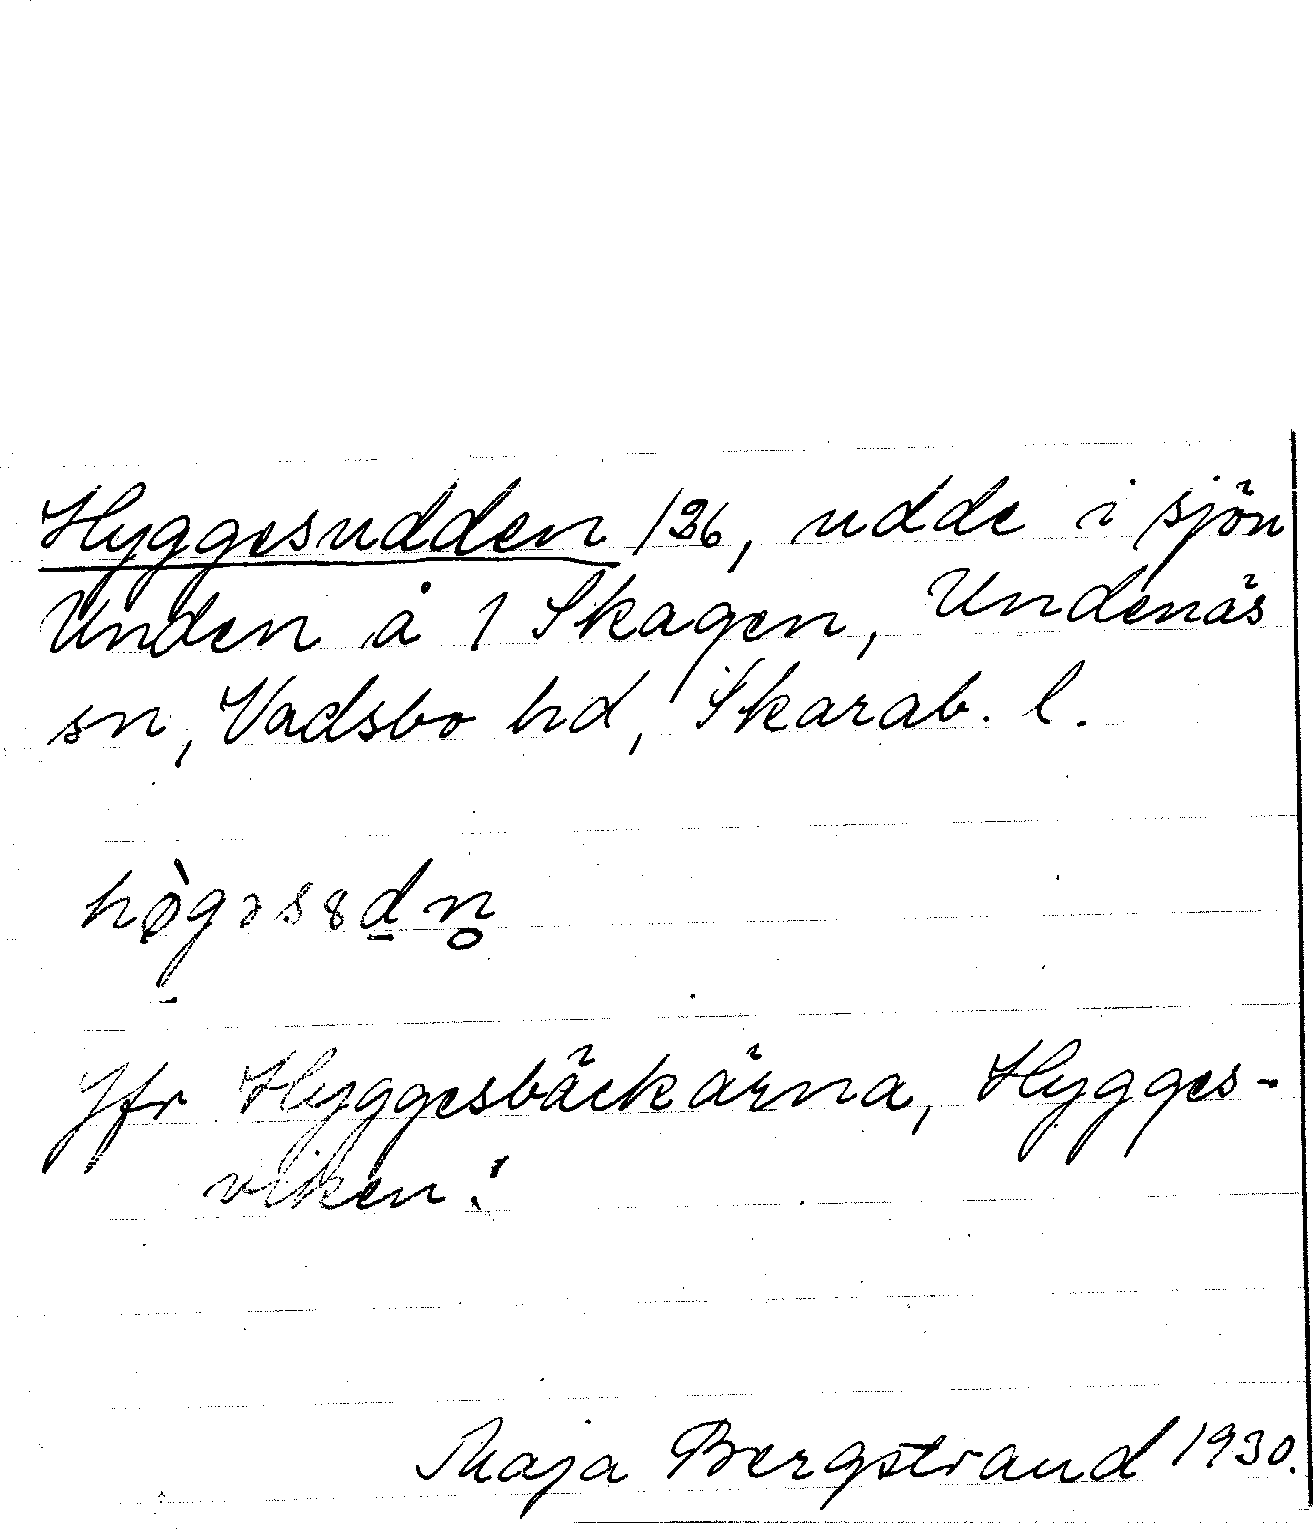 Hyggesudden 136, udde i sjön
Unden å 1 Skagen, Undenäs
sn, Vadsbo hd, Skarab. l.
hø̀gəsȣd̲n̥
Jfr Hyggesbäckärna, Hygges-
viken!
Maja Bergstrand 1930.